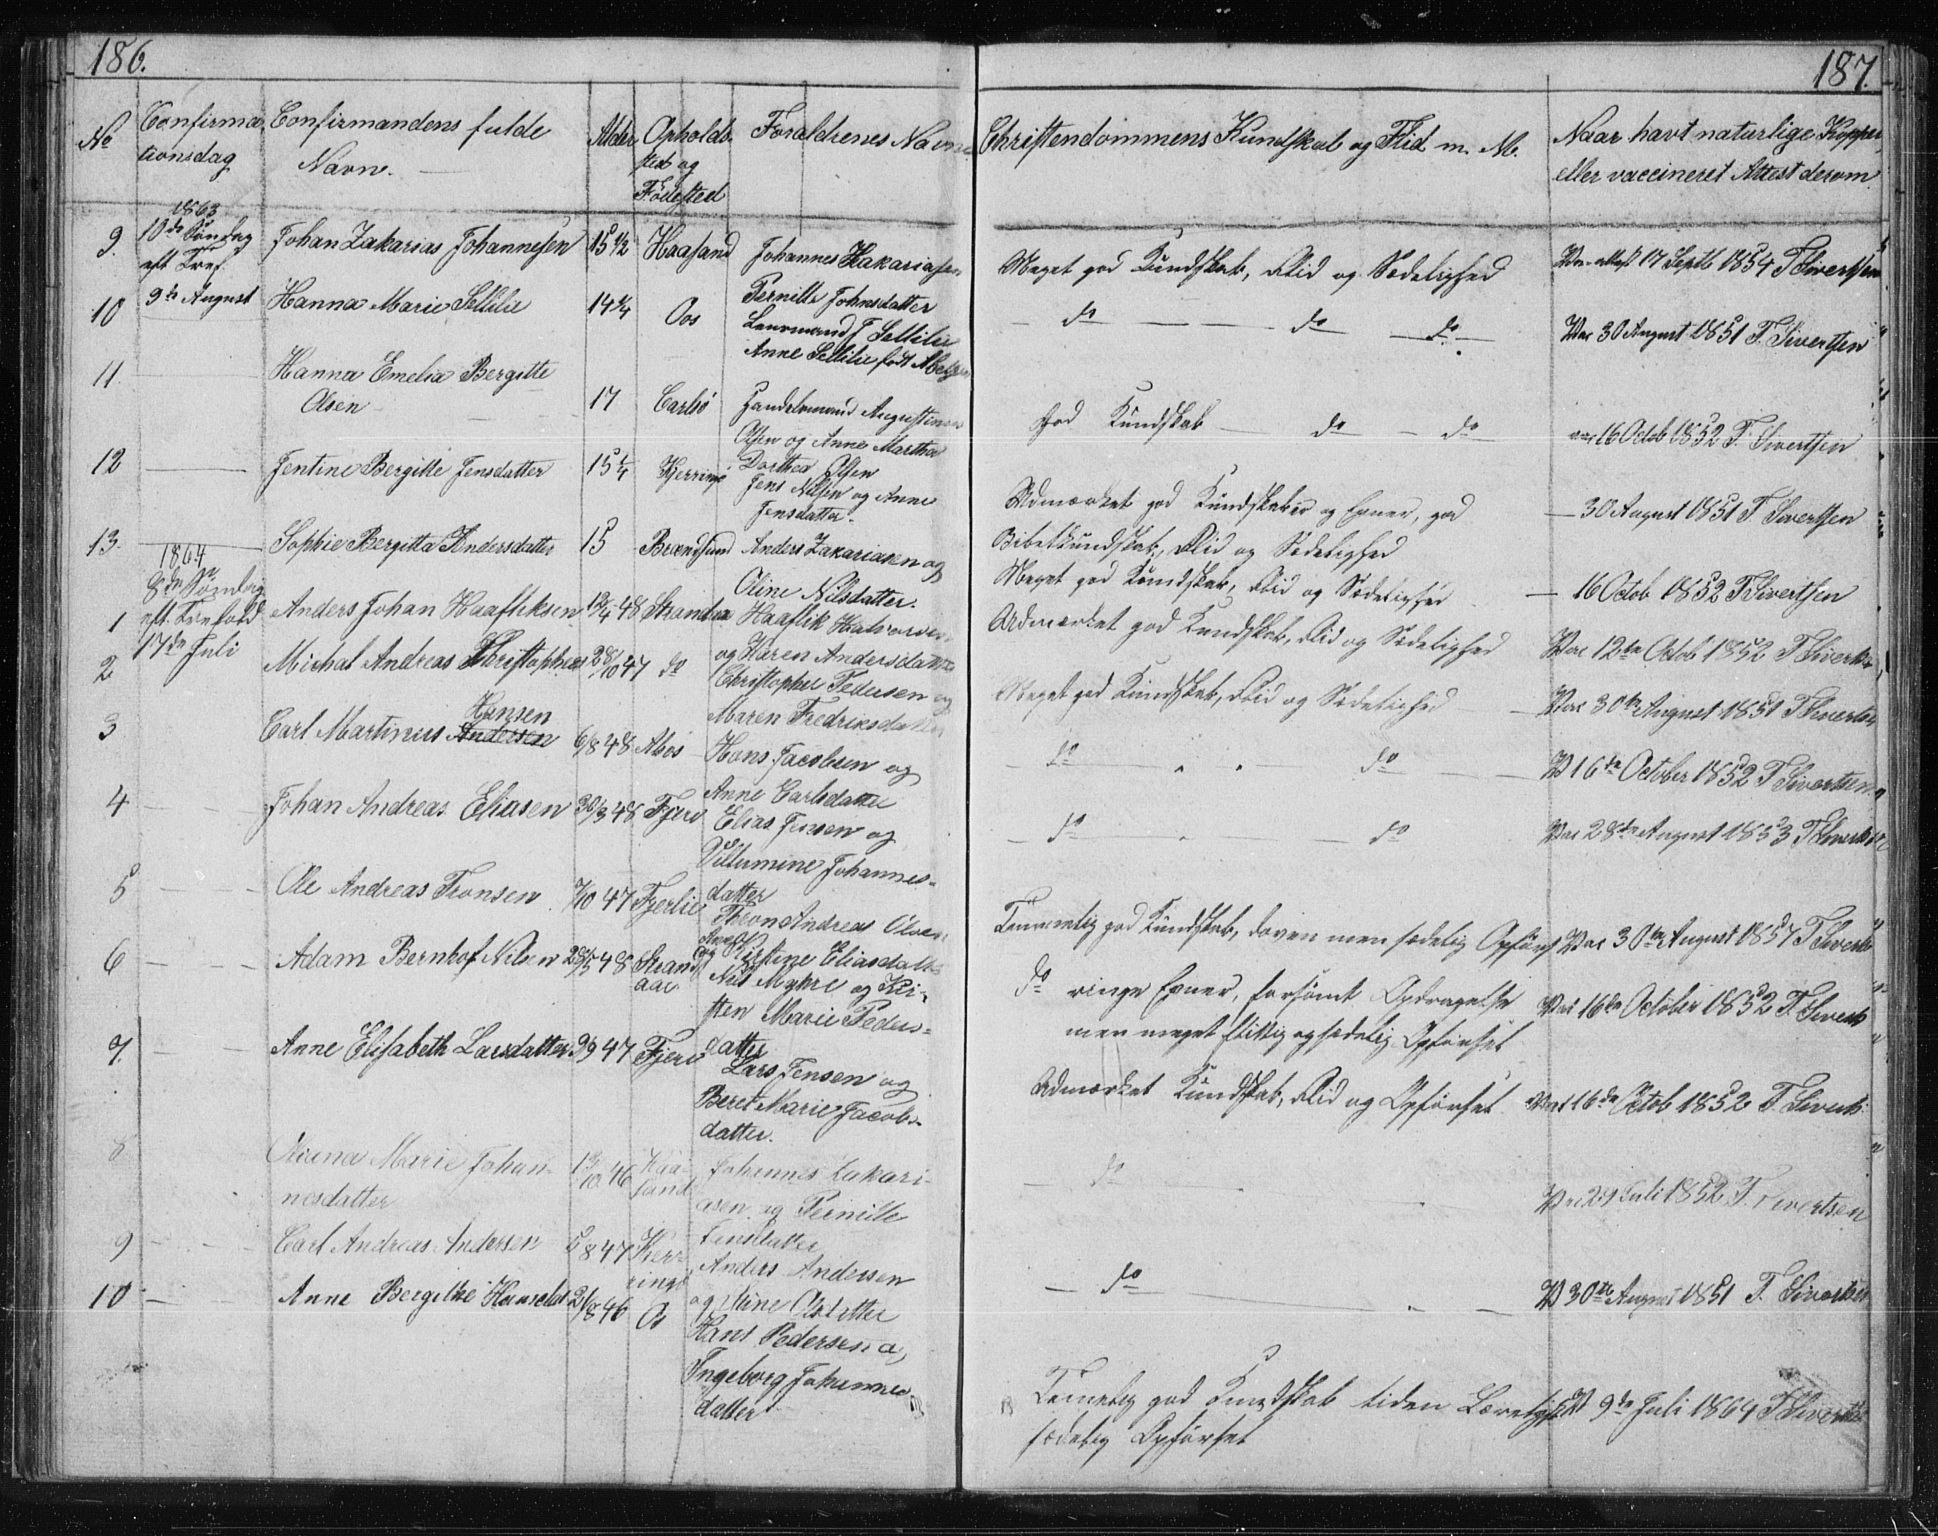 186.
No
Confirma
tionsdag
Confirmandens fulde
Navn.
Alder
Opholds
sted og
Fødested
Forældrenes Navne
1863
9. 10de Søndag Johan Zakarias Johannesen 15 1/2 Haasand Johannes Zakariasen
eft Tref.
Pernille Johnsdatter
10 9de August Hanna Marie Sellilie 14 1/4 Oos
Lensmand F Sellilie
Anne Sellilie født
11. Hanna Emelia Bergitte
Olsen 17 Carlsø Handelsmand Augustinus
Olsen og Anne Martha
Dorthea Olsen
12 Jentine Bergitte Jensdatter 15 1/4 Kjerringø
Jens Nilsen og Anne
Jensdatter.
13. Sophie Bergitta Andersdatter 15 Brændsund Anders Zakariasen og
Oline Nilsdatter.
1864
8de Søndag
1 eft. Trefold Anders Johan Haafliksen 12/4 48 Strandaa Haaflik Halvorsen
17de Juli
og Karen Andersdatter
2 Michal Andreas Christophersen 28/10 47 do
Christopher Pedersen og
Maren Fredriksdatter
Hansen
3 Carl Martinius Andersen 6/8 48 Alsos Hans Jacobsen og
Anne Carlsdatter
4 Johan Andreas Eliasen 30/3 48 Fjære Elias Jensen og
Vilhelmine Johannes-
datter
5 Ole Andreas Tronsen 7/10 47 Fjerlie
Thron Andreas Olsen
og Kirstine Eliasdatter
6 Adam Bernhof Nilsen 28/5 48 Strand
aae
Nils Myhre og Kir-
sten Marie Peders-
datter
7. Anne Elisabeth Larsdatter 9/9 47 Fjære
Lars Jensen og
Beret Marie Jacobs-
datter.
8 Marie Johan-
nesdatter 13/10 46 Haa-
sand
Johannes Zakari-
asen og Pernille
Jensdatter
9 Carl Andreas Andersen 5/8 47 Kjer-
ringø
Anders Andersen
og Stine Olsdatter
10 Anne Bergithe Hansdat 21/8 46 Os
Hans Pedersen og
Ingeborg Johannes-
datter
187.
Christendommens Kundskab og Flid m. M.
Naar havt naturlige Kopper,
eller vaccineret Attest derom
Meget god Kundskab, Flid og Sædelighed
Vac. attest 17 Septb 1854 T Sivertsen
do do do
Vac 30 August 1851 T. Sivertsen
God Kundskab do do
vac 16 Octob 1852 T. Sivertsen
Udmærket god Kundskaber og Evner, god
Bibelkundskab, Flid og Sædelighed
30 August 1851 T Sivertsen
Meget god Kundskab, Flid og Sædelighed
16 Octob 1852 T Sivertsen
Udmærket god Kundskab, Flid og Sædelighed
Vac 12te Octob 1852 T Sivertsen
Meget god Kundskab, Flid og Sædelighed
Vac 30te August 1851 T Sivertsen
do do
V 16de October 1852 T Sivertsen
do do
Vac 28de August 1853 T Sivertsen
Temmelig god Kundskab, doven men sædelig Opførsel
Vac 30te August 1857 T Sivert
do ringe Evner, forsømt Opdragelse
men meget flittig og sædelig Opførsel
Vac 16de October 1852 T. Sivert
Udmærket Kundskab, Flid og Opførsel
Vac 16de Octob 1852 T. Sivert
do
Vac 29 Juli 1852 T. Sivertsen
do
V 30te August 1851 T. Sivertsen
Temelig god Kundskab liden
sædelig Opførsel
V 9de Juli 1864 T Sivertsen